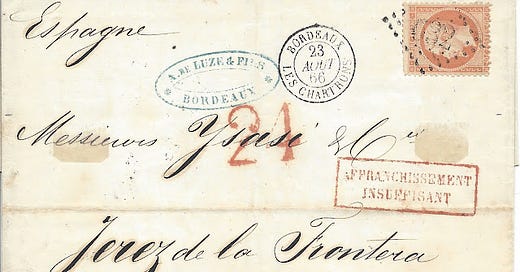 Espagne
A. DE LUZE & FILS
BORDEAUX
BORDEAUX
23
AOUT
66
LES CHARTRONS
Messieurs Ysasi & Cie
24
AFFRANCHISSEMENT
INSUFFISANT
Jerez de la Frontera